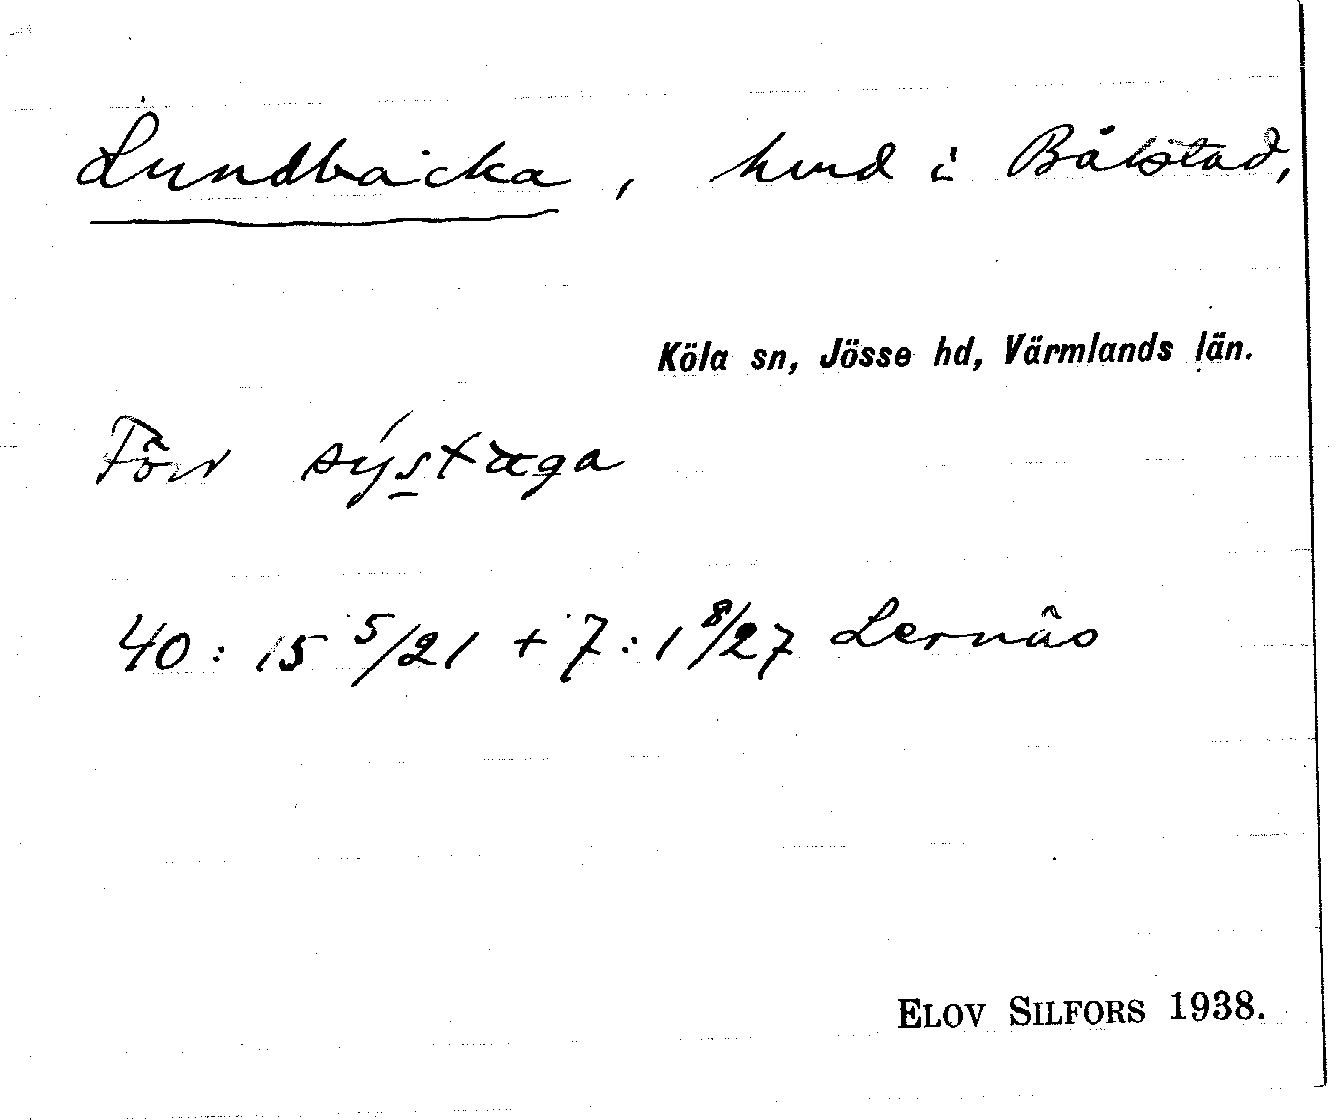 Lundbacka, hmd i Bålstad,
Köla sn, Jösse hd, Värmlands län.
Förr sýstæga
40:15 5/21 + 7:1 8/27 Lernäs
ELOV SILFORS 1938.